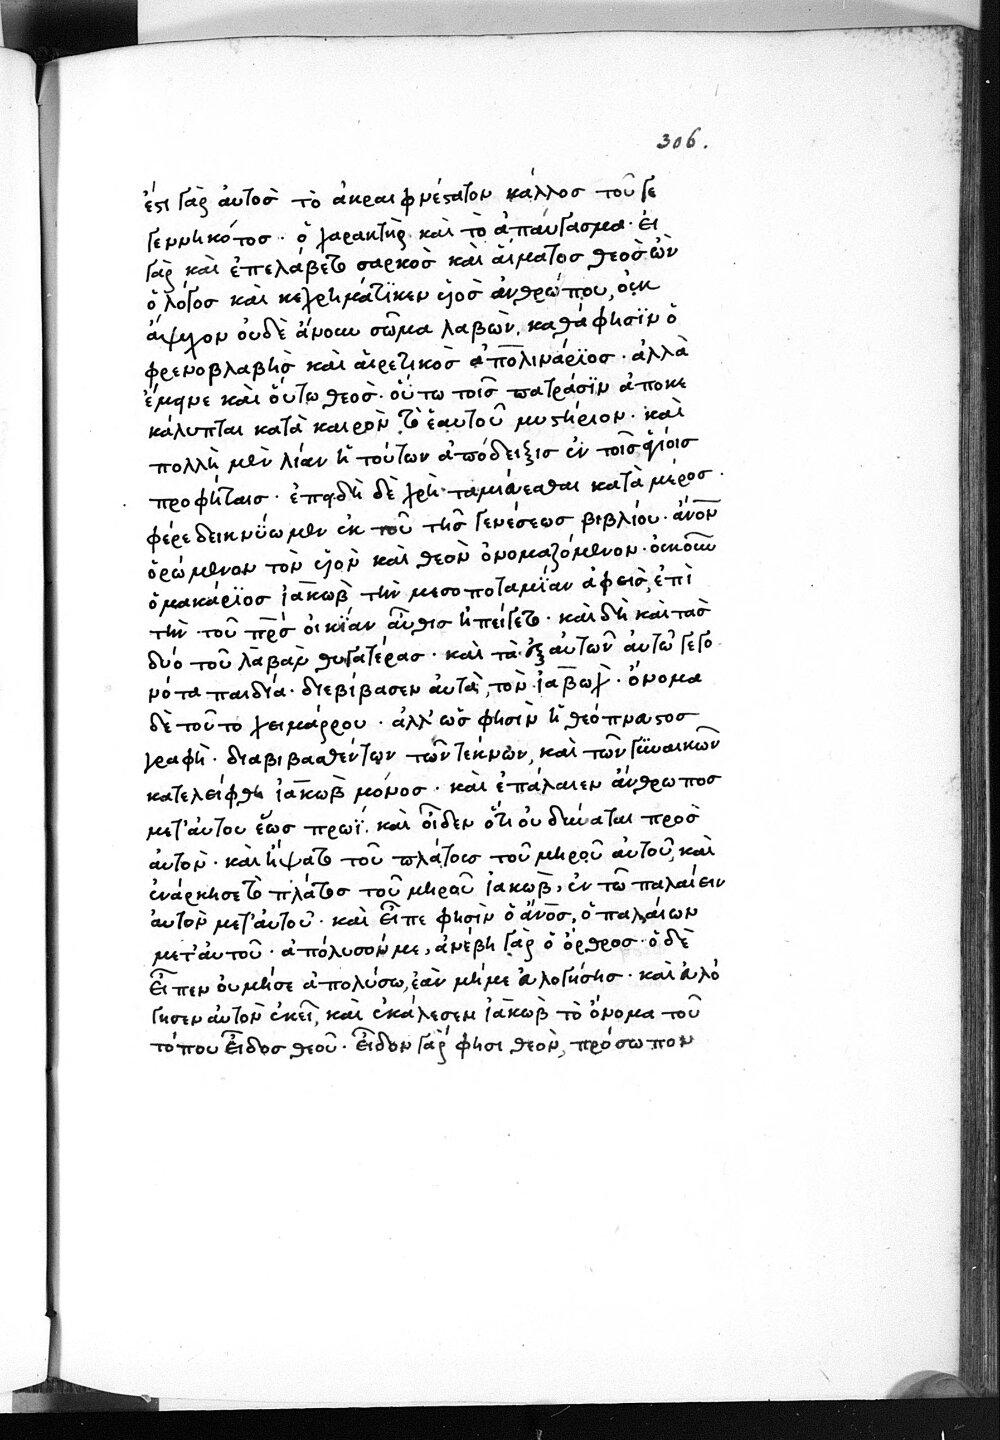 306.
ἐστι γὰρ ἀυτὸσ τὸ ἀκραιφνέστατον κάλλοσ τοῦ γε
γεννηκότοσ · ὁ χαρακτὴρ καὶ τὸ ἀπαύγασμα · ἐι
γὰρ καὶ ἐπελάβετο σαρκὸσ καὶ ἅιματοσ θεὸσ ὢν
ὁ λόγοσ καὶ κεχρημάτϊκεν ὑιὸσ ἀνθρώπου, ὀυκ
ἄψυχον ὀυδὲ ἄνουν σῶμα λαβὼν, καθά φησϊν ὁ
φρενοβλαβὴσ καὶ ἁιρετικὸσ ἀπολινάρϊοσ · ἀλλὰ
ἔμεινε καὶ ὅυτω θεὸσ · ὅυτω τοῖσ πατράσϊν ἀποκε
κάλυπται κατὰ καιρὸν τὸ ἑαυτοῦ μυστήριον · καὶ
πολλὴ μὲν λίαν ἡ τούτων ἀπόδειξισ ἐν τοῖσ ἁγίοισ
προφήταισ · ἐπειδὴ δὲ χρὴ ταμιέυεσθαι κατὰ μέροσ ·
φέρε δεικνύωμεν ἐκ τοῦ τῆσ γενέσεωσ βιβλίου · ἀν̅ο̅ν
ὁρώμενον τὸν ὑιὸν καὶ θεὸν ὀνομαζόμενον · ὀυκοῦν
ὁ μακάρϊοσ ἰακὼβ τὴν μεσοποταμΐαν ἀφεισ, ἐπὶ
τὴν τοῦ π̅ρ̅σ ὀικΐαν ἀῦθισ ἠπείγετο · καὶ δὴ καὶ τὰσ
δύο τοῦ λάβαν θυγατέρασ · καὶ τὰ ἐξ ἀυτῶν ἀυτῶ γεγο
νότα παιδία · διεβίβασεν ἀυτὰ, τὸν ἰαβὼχ · ὄνομα
δὲ τοῦτο χειμάρρου · ἀλλ' ὥσ φησὶν ἡ θεόπνευστοσ
γραφὴ · διαβιβασθέντων τῶν τέκνων, καὶ τῶν γϋναικῶν
κατελείφθη ἰακὼβ μόνοσ · καὶ ἐπάλαιεν ἄνθρωποσ
μετ' ἀυτου ἕωσ πρωΐ. καὶ ὀῖδεν ὅτι ὀυ δύναται πρὸσ
ἀυτὸν · καὶ ἥψατο τοῦ πλάτουσ τοῦ μηροῦ ἀυτοῦ, καὶ
ἐνάρκησε τὸ πλάτοσ τοῦ μηροῦ ἰακὼβ, ἐν τῶ παλαίειν
ἀυτὸν μετ' ἀυτοῦ · καὶ ἐῖπε φησὶν ὁ ἄν̅ο̅σ, ὁ παλαίων
μετ' ἀυτοῦ · ἀπόλυσόν με, ἀνέβη γὰρ ὁ ὄρθροσ · ὁ δὲ
ἐῖπεν ὀυ μήσε ἀπολύσω, ἐὰν μήμε ἐυλογήσησ · καὶ ἐυλό
γησεν ἀυτὸν ἐκεῖ, καὶ ἐκάλεσεν ἰακὼβ τὸ ὄνομα τοῦ
τόπου ἐῖδοσ θεοῦ · ἐῖδον γὰρ φησι θεὸν, πρόσωπον